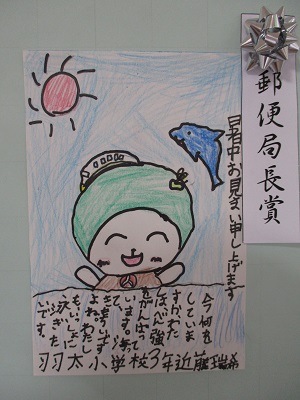 郵便局長賞
暑中お見まい申し上げます
今何を
していま
すか。わた
しはべん強
をがんばって
います。
よね。わたし
もいっしょに
泳ぎた
いです。
羽太小学校3年近藤瑞希